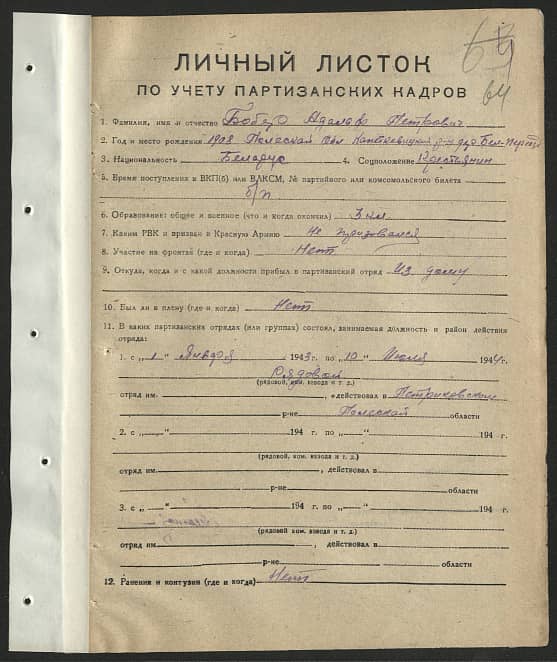 64
ЛИЧНЫЙ ЛИСТОК
ПО УЧЕТУ ПАРТИЗАНСКИХ КАДРОВ
1. Фамилия, имя и отчество Бобер Адальф Петрович
2. Год и место рождения 1908 Полеской обл Копткевицкий р-н д
3. Национальность Беларус 4. Соцположение Крестьянин
5. Время поступления в ВКП(б) или ВЛКСМ, № партийного или комсомольского билета
б/п
6. Образование: общее и военное (что и когда окончил) 3 кл
7. Каким РВК и призван в Красную Армию не призовался
8. Участие на фронтах (где и когда) Нет
9. Откуда, когда и с какой должности прибыл в партизанский отряд Из дому
10. Был ли в плену (где и когда) Нет
11. В каких партизанских отрядах (или группах) состоял, занимаемая должность и район действия
отряда:
1. с „ 1 “ Января 1943 г. по „ 10 “ Июля 1944 г.
Рядовой
(рядовой, ком. взвода и т. д.)
отряд им. , действовал в Петриковском
р-не Полесской области
2. с „ “ 194 г. по „ “ 194 г.
(рядовой, ком. взвода и т. д.)
отряд им. , действовал в
р-не области
3. с „ “ 194 г. по „ “ 194 г.
(рядовой, ком. взвода и т. д.)
отряд им. , действовал в
р-не области
12. Ранения и контузии (где и когда) Нет